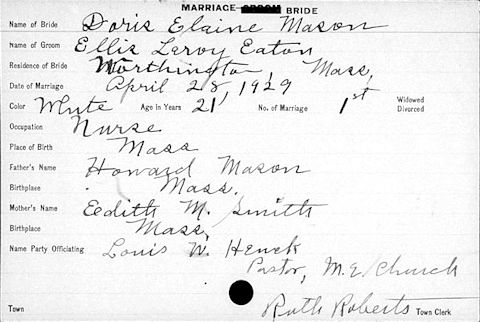 MARRIAGE GROOM BRIDE
Name of Bride Doris Elaine Mason
Name of Groom Ellis Leroy Eaton
Residence of Bride Worthington, Mass.
Date of Marriage April 28, 1929
Color White Age in Years 21 No. of Marriage 1st Widowed
Divorced
Occupation Nurse
Place of Birth Mass
Father's Name Howard Mason
Birthplace Mass.
Mother's Name Eedith M. Smith
Birthplace Mass,
Name Party Officiating Louis W. Henck
Pastor, M.E. Church
Town Ruth Roberts Town Clerk